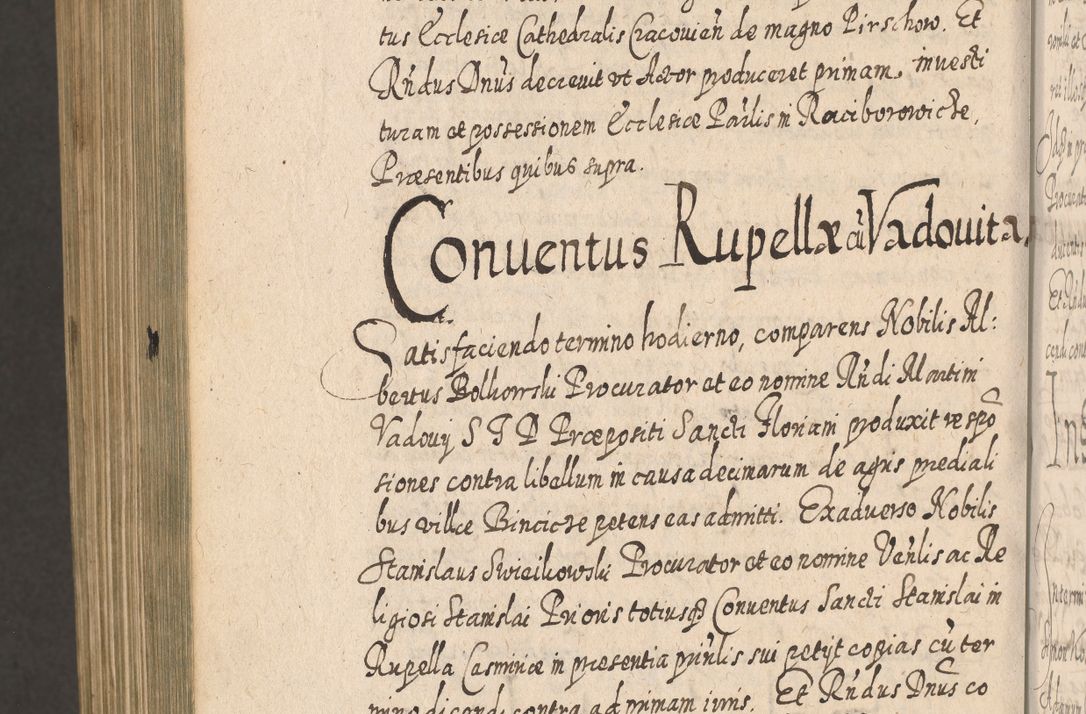 tus Ecclesiæ Cathedralis Cracouień de magno Pirschow. Et
Rńdus Dnús decreuit vt Actor produceret primam inuesti
turam et possessionem Ecclesiæ Paúlis in Raciborowicze,
Præsentibus quibus supra.
Conuentus Rupellæ cū Vadouita.
Satisfaciendo termino hodierno, comparens Nobilis Al:
bertus Bolkowski Procurator et eo nomine Rńdi Martini
Vadouij S T D Præpositi Sancti Floriani produxit respō
siones contra libellum in causa decimarum de agris prediali
bus villæ Bincicze petens eas admitti. Exaduerso Nobilis
Stanislaus Swiecikowski Procurator et eo nomine Veńlis ac Re
ligiosi Stanislai Prioris totiusq3 Conuentus Sancti Stanislai in
Rupella Casmiriæ in præsentia prińlis sui petijt copias cū ter
mino dicendi contra ad primam iuris. Et Rńdus Dnús co